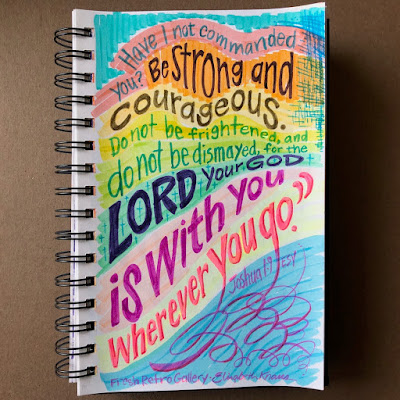 Have I not commanded
you? Be strong and
courageous.
Do not be frightened, and
do not be dismayed, for the
LORD your GOD
is with you
wherever you go."
Joshua 1:9 ESV
Fresh Retro Gallery - Elizabeth